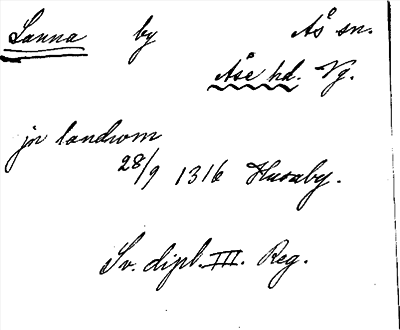 Lanna by Ås sn.
Åse hd. Vg.
jn landwom
28/9 1316 Husaby.
Sv. dipl. III. Reg.